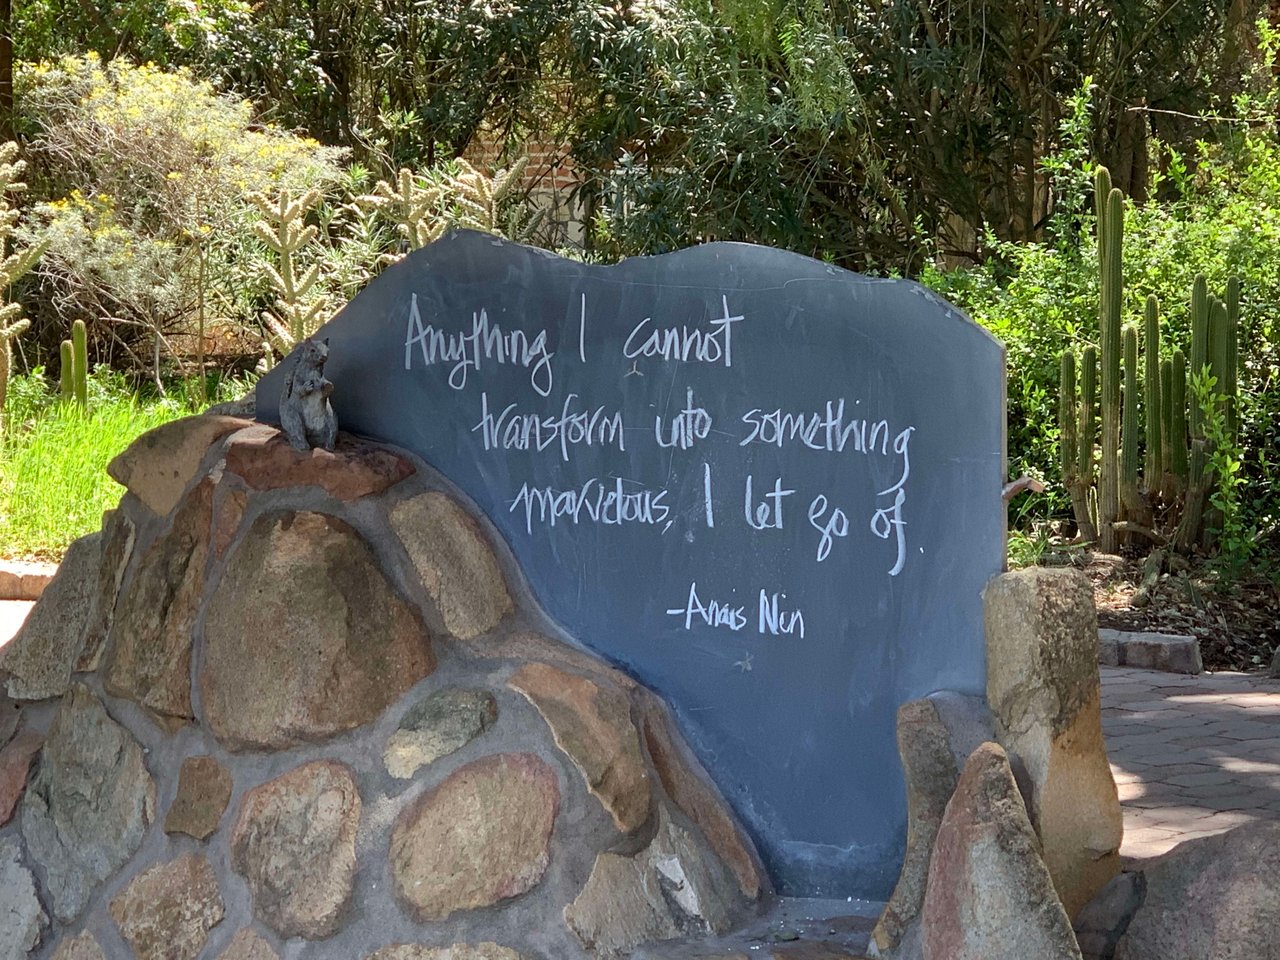 Anything I cannot
transform into something
marvelous, I let go of.
-Anais Nin